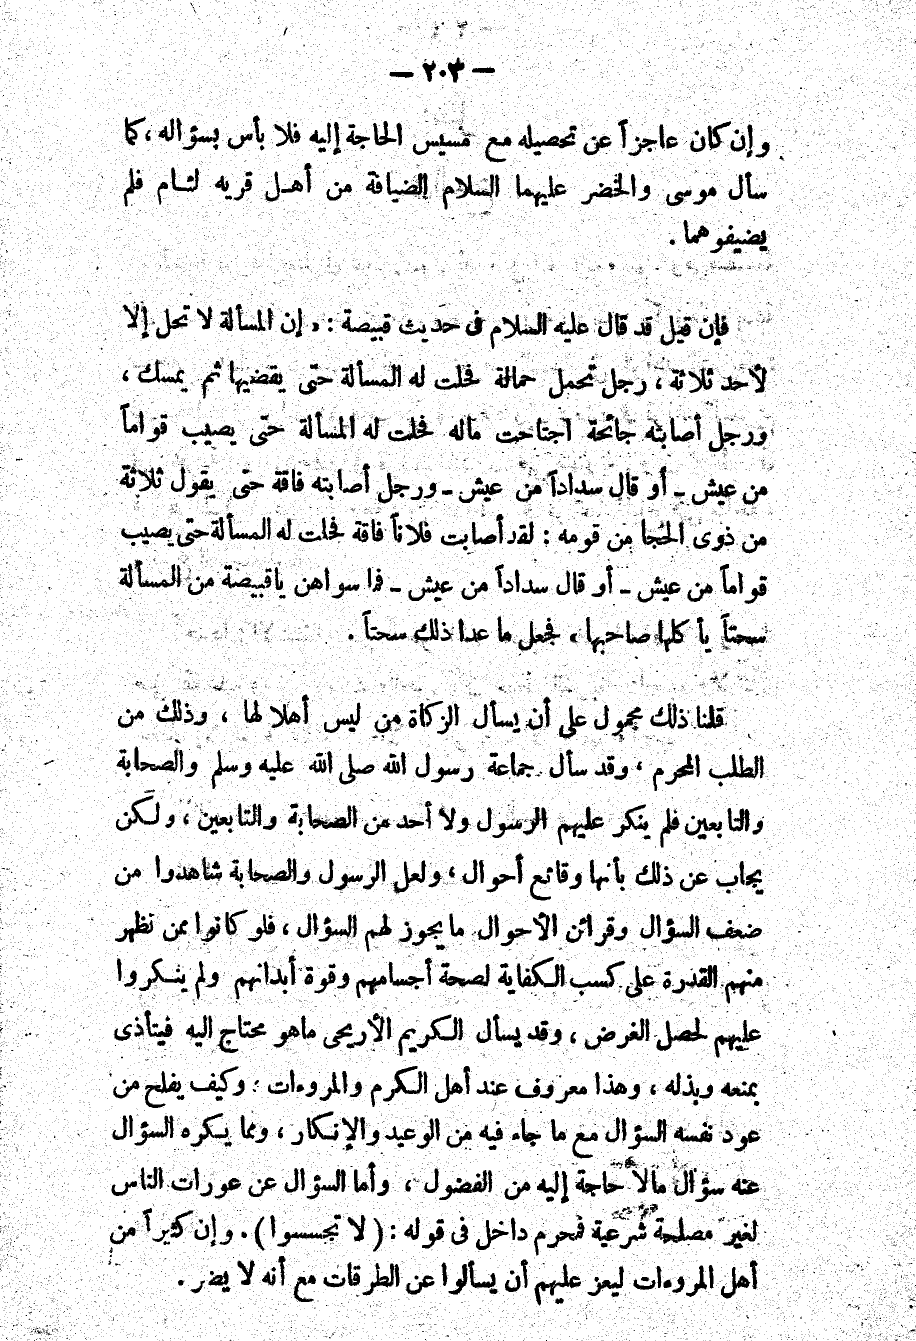 — ٢٠٣ —
وإن كان عاجزاً عن تحصيله مع مسيس الحاجة إليه فلا بأس بسؤاله ، كما
سأل موسى والخضر عليهما السلام الضيافة من أهـل قريه لئـام فلم
يضيفوهما .
فإن قيل قد قال عليه السلام فى حديث قبيصة : « إن المسألة لا تحل إلا
لأحد ثلاثة ، رجل تحمل حمالة فحلت له المسألة حتى يقضيها ثم يمسك ،
ورجل أصابته جائحة اجتاحت ماله فحلت له المسألة حتى يصيب قواماً
من عيش ـ أو قال سداداً من عيش ـ ورجل أصابته فاقة حتى يقول ثلاثة
من ذوى الحجا من قومه : لقد أصابت فلاناً فاقة فحلت له المسألة حتى يصيب
قواماً من عيش ـ أو قال سداداً من عيش ـ فما سواهن ياقبيصة من المسألة
سحتاً يأ كلها صاحبها ، فجعل ما عدا ذلك سحتاً .
قلنا ذلك محمول على أن يسأل الزكاة من ليس أهلا لها ، وذلك من
الطلب المحرم ، وقد سأل جماعة رسول الله صلى الله عليه وسلم والصحابة
والتابعين فلم ينكر عليهم الرسول ولا أحد من الصحابة والتابعين ، ولـكن
يجاب عن ذلك بأنها وقائع أحوال ، ولعل الرسول والصحابة شاهدوا من
ضعف السؤال وقرائن الأحوال ما يجوز لهم السؤال ، فلو كانوا ممن تظهر
منهم القدرة على كسب الـكفاية لصحة أجسامهم وقوة أبدانهم ولم ينـكروا
عليهم لحصل الغرض ، وقد يسأل الـكريم الأريحى ماهو محتاج اليه فيتأذى
بمنعه وبذله ، وهذا معروف عند أهل الـكرم والمروءات ؛ وكيف يفلح من
عود نفسه السؤال مع ما جاء فيه من الوعيد والإنـكار ، ومما يـكره السؤال
عنه سؤال مالا حاجة إليه من الفضول ، وأما السؤال عن عورات الناس
لغير مصلحة شرعية فمحرم داخل فى قوله : ( لا تجسسوا ) . وإن كثيراً من
أهل المروءات ليعز عليهم أن يسألوا عن الطرقات مع أنه لا يضر .